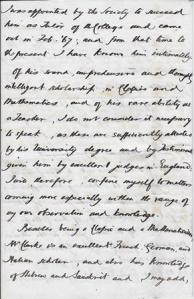 was appointed by the Society to succeed
him as Tutor of the College and came
out in Feb. '67; and from that time to
the present I have known him intimately
Of his sound, comprehensive and
intelligent scholarship in Classics and
Mathematics, and of his rare ability as
a Teacher, I do not consider it necessary
to speak, as these are sufficiently attested
by his University degree and by Testimonials
given him by excellent judges in England.
I will therefore, confine myself to matters
coming more especially within the range of
my own observation and knowledge.
Besides being a Classic and a Mathematician,
Mr Clarke is an excellent French, German, and
Italian scholar, and also has knowledge
of Hebrew and Sanskrit and, I may add,